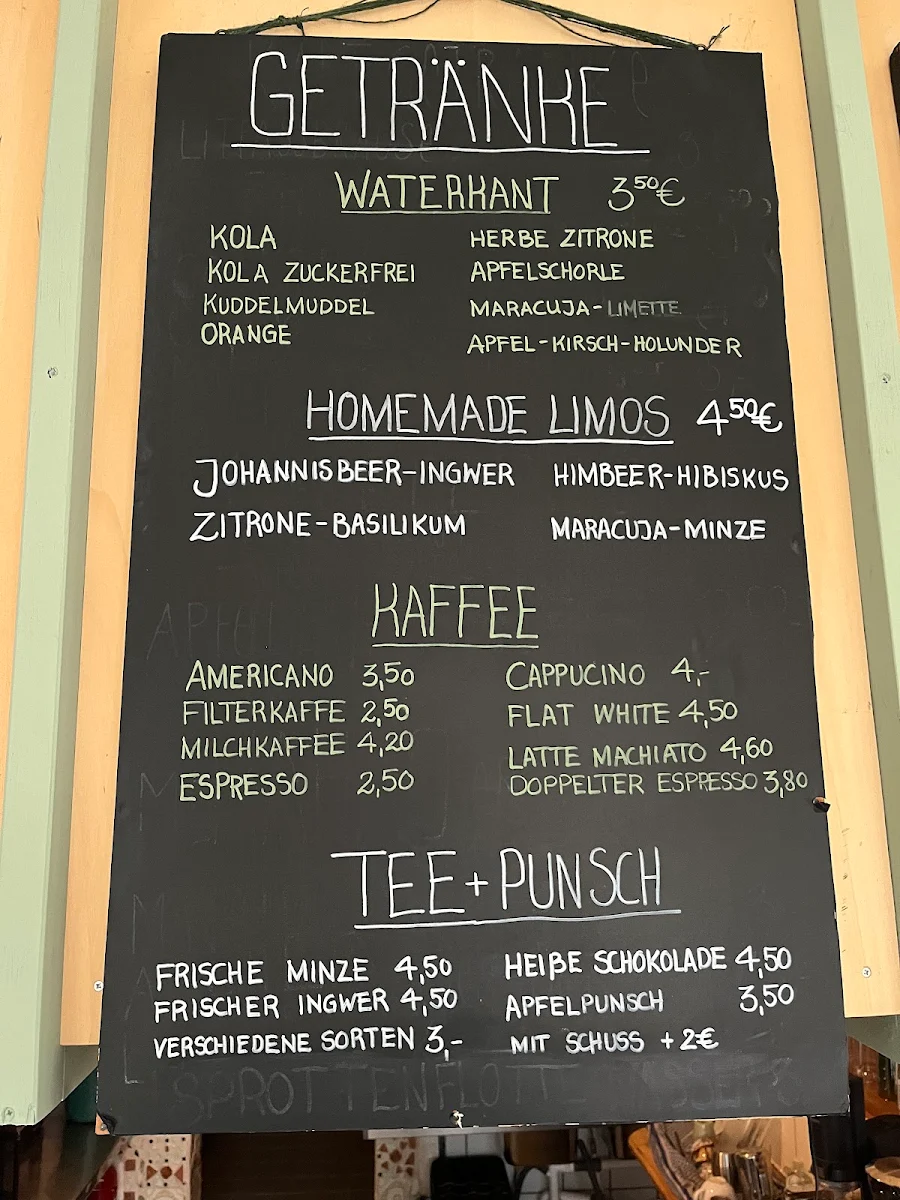 GETRÄNKE
WATERKANT 3⁵⁰€
KOLA
KOLA ZUCKERFREI
KUDDELMUDDEL
ORANGE
HERBE ZITRONE
APFELSCHORLE
MARACUJA-LIMETTE
APFEL-KIRSCH-HOLUNDER
HOMEMADE LIMOS 4⁵⁰€
JOHANNISBEER-INGWER
ZITRONE-BASILIKUM
HIMBEER-HIBISKUS
MARACUJA-MINZE
KAFFEE
AMERICANO 3,50
FILTERKAFFE 2,50
MILCHKAFFEE 4,20
ESPRESSO 2,50
CAPPUCINO 4,-
FLAT WHITE 4,50
LATTE MACHIATO 4,60
DOPPELTER ESPRESSO 3,80
TEE+PUNSCH
FRISCHE MINZE 4,50
FRISCHER INGWER 4,50
VERSCHIEDENE SORTEN 3,-
HEIßE SCHOKOLADE 4,50
APFELPUNSCH 3,50
MIT SCHUSS +2€
SPROTTENFLOTT